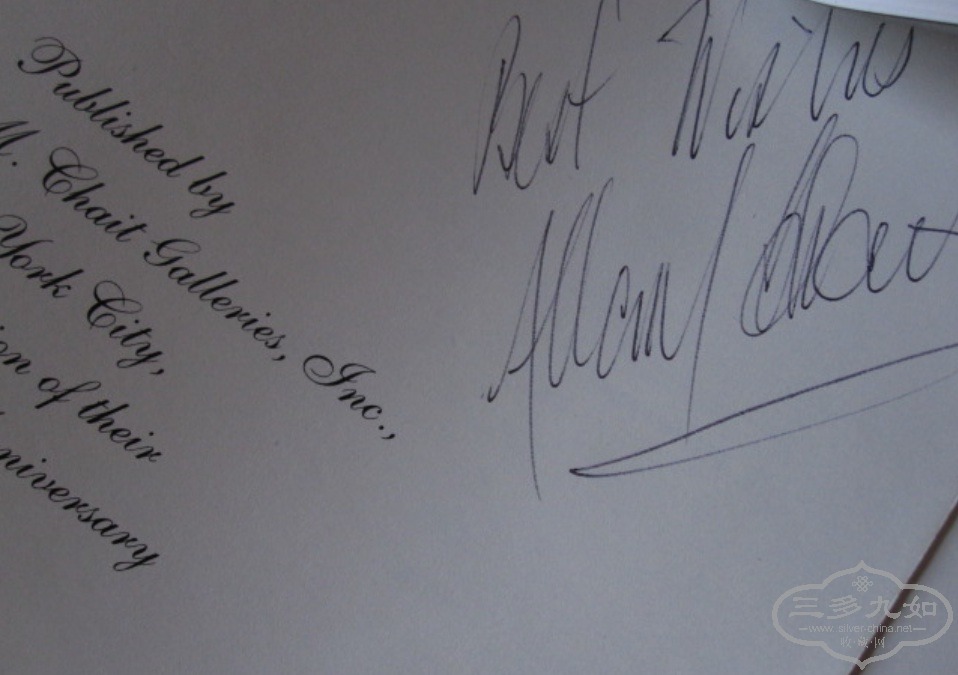 Published by
M. Chait Galleries, Inc.,
York City,
ion of their
niversary
Best Wishes
Allan
三多九如
www.silver-china.net
收藏网